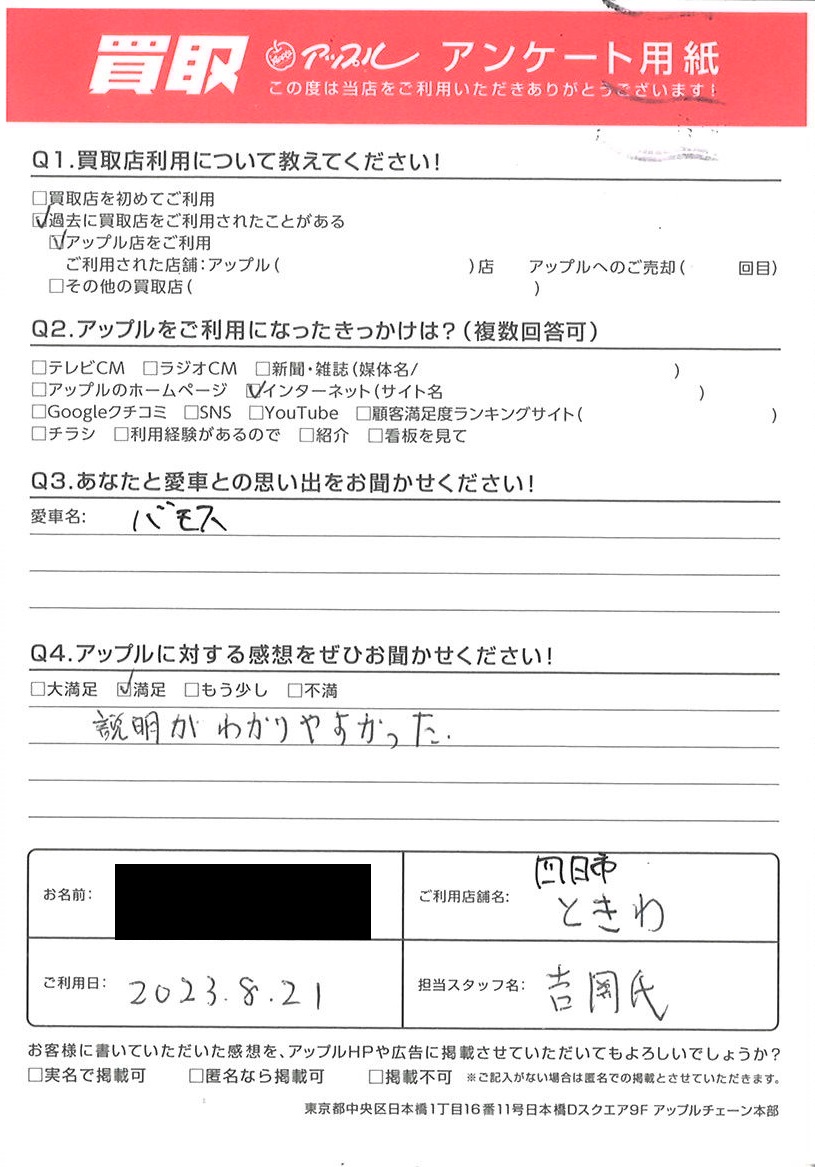 買取 アップル アンケート用紙
この度は当店をご利用いただきありがとうございます!
Q1.買取店利用について教えてください!
□買取店を初めてご利用
☑過去に買取店をご利用されたことがある
☑アップル店をご利用
ご利用された店舗:アップル( )店 アップルへのご売却( 回目)
□その他の買取店( )
Q2.アップルをご利用になったきっかけは?(複数回答可)
□テレビCM □ラジオCM □新聞・雑誌(媒体名/ )
□アップルのホームページ ☑インターネット(サイト名 )
□Googleクチコミ □SNS □YouTube □顧客満足度ランキングサイト( )
□チラシ □利用経験があるので □紹介 □看板を見て
Q3.あなたと愛車との思い出をお聞かせください!
愛車名: バモス
Q4.アップルに対する感想をぜひお聞かせください!
□大満足 ☑満足 □もう少し □不満
説明がわかりやすかった.
お名前:
ご利用店舗名: 四日市 ときわ
ご利用日: 2023.8.21
担当スタッフ名: 吉岡氏
お客様に書いていただいた感想を、アップルHPや広告に掲載させていただいてもよろしいでしょうか?
□実名で掲載可 □匿名なら掲載可 □掲載不可 ※ご記入がない場合は匿名での掲載とさせていただきます。
東京都中央区日本橋1丁目16番11号日本橋Dスクエア9F アップルチェーン本部